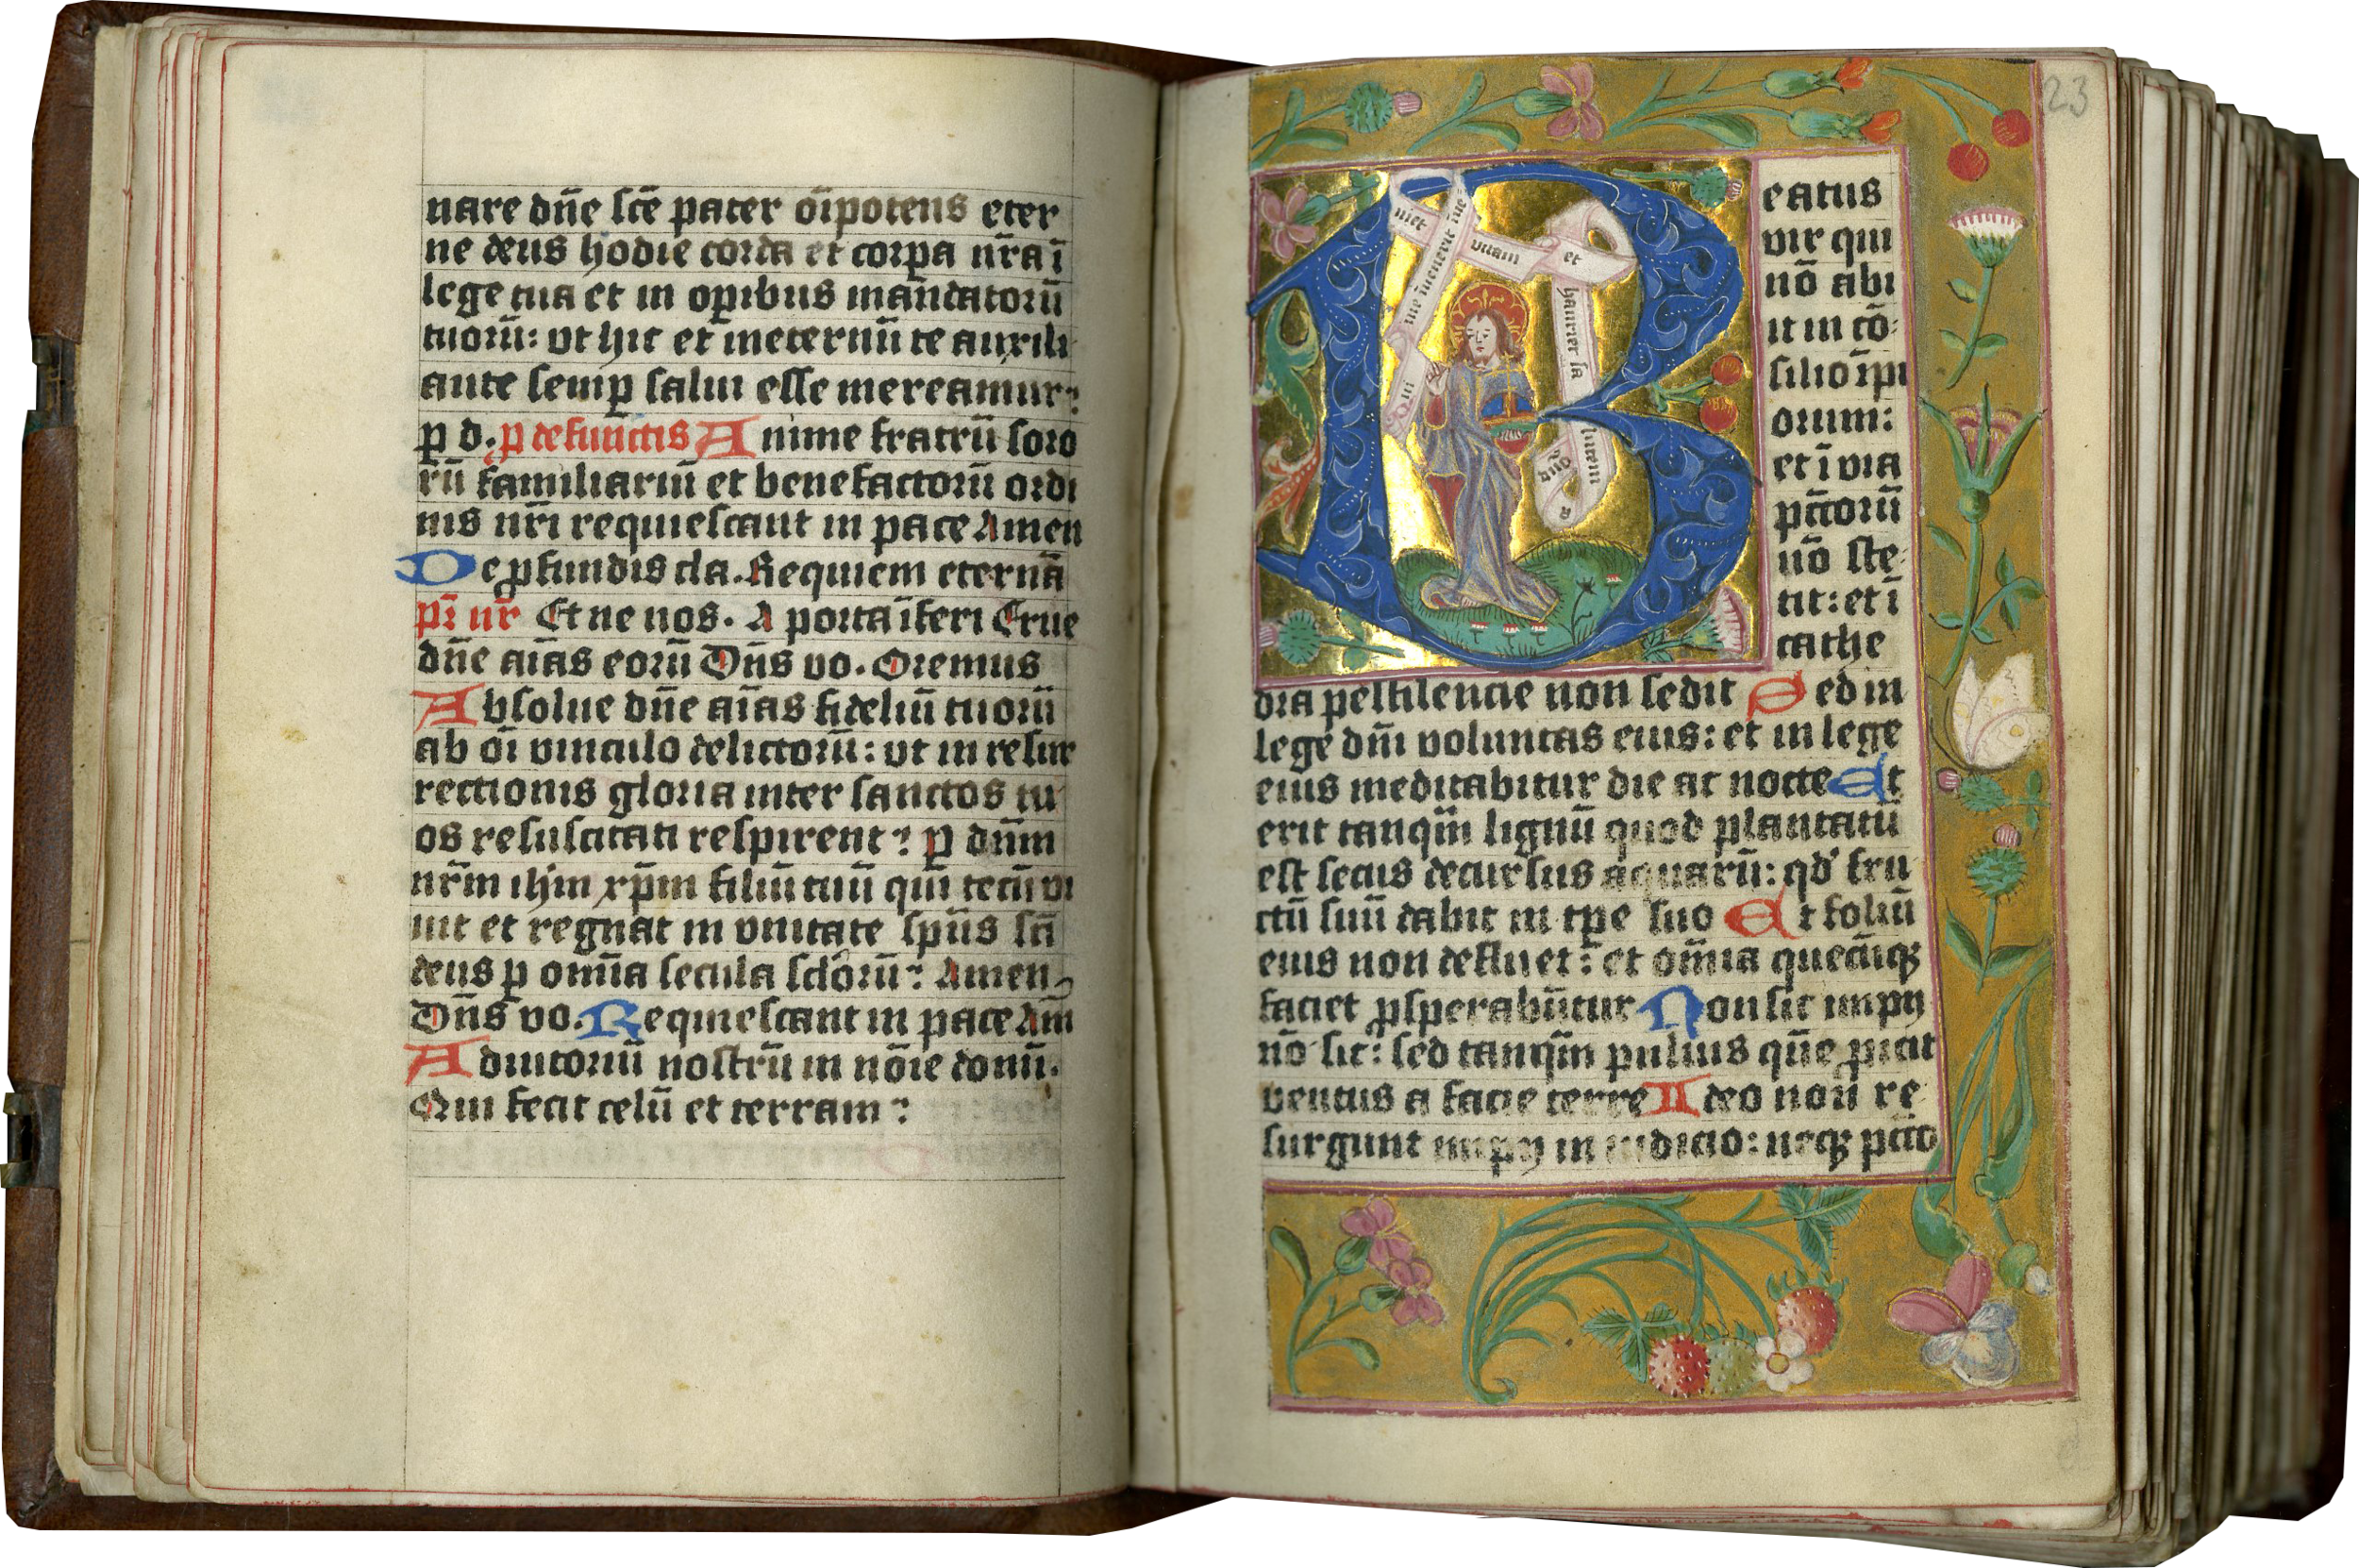 nare dn̄e sc̄e pater oı̄potens eter
ne deus hodie corda et corpa nr̄a ī
lege tua et in opibus man̄datorū
tuorū: vt hic et īneternū te auxili
ante semp salui esse mereamur:
p d. p defun̄ctis Anime fratrū soro
rū familiariū et benefactorū ordi
nis nr̄i requiescant in pace Amen
De pfundis cla. Requiem eternā
pr̄ nr̄ Et ne nos. A porta īferi Erue
dn̄e aīas eorū Dn̄s vo. Oremus
Absolue dn̄e aīas fideliū tuorū
ab oī vinculo delictorū: vt in resur
rectionis gloria inter sanctos tu
os resuscitati respirent: p dn̄m
nr̄m ihm̄ xp̄m filiū tuū qui tecū vi
uit et regnat in vnitate sp̄us sc̄i
deus p om̄ia secula sclorū: Amen
Dn̄s vo. Requiescant in pace Am̄
Adiutoriū nostrū in nōie domī.
Qui fecit celū et terram:
23
Qui me inuenerit inue
niet vitam et
hauriet sa
lutem
a
dno
Beatus
vir qui
nō abi
it in cō
silio īpi
orum:
et ī via
pctorū
nō ste
tit: et ī
cathe
dra pestilencie non sedit Sed in
lege dn̄i voluntas eius: et in lege
eius meditabitur die ac nocte Et
erit tanqm̄ lignū quod plantatū
est secus decursus aquarū: qd fru
ctū suū dabit in tpe suo Et foliū
eius non defluet: et om̄ia quecūqȝ
faciet psperabūtur Non sic impij
nō sic: sed tanqm̄ puluis quē proicit
ventus a facie terre Ideo non re
surgunt impij in iudicio: neqȝ pcto